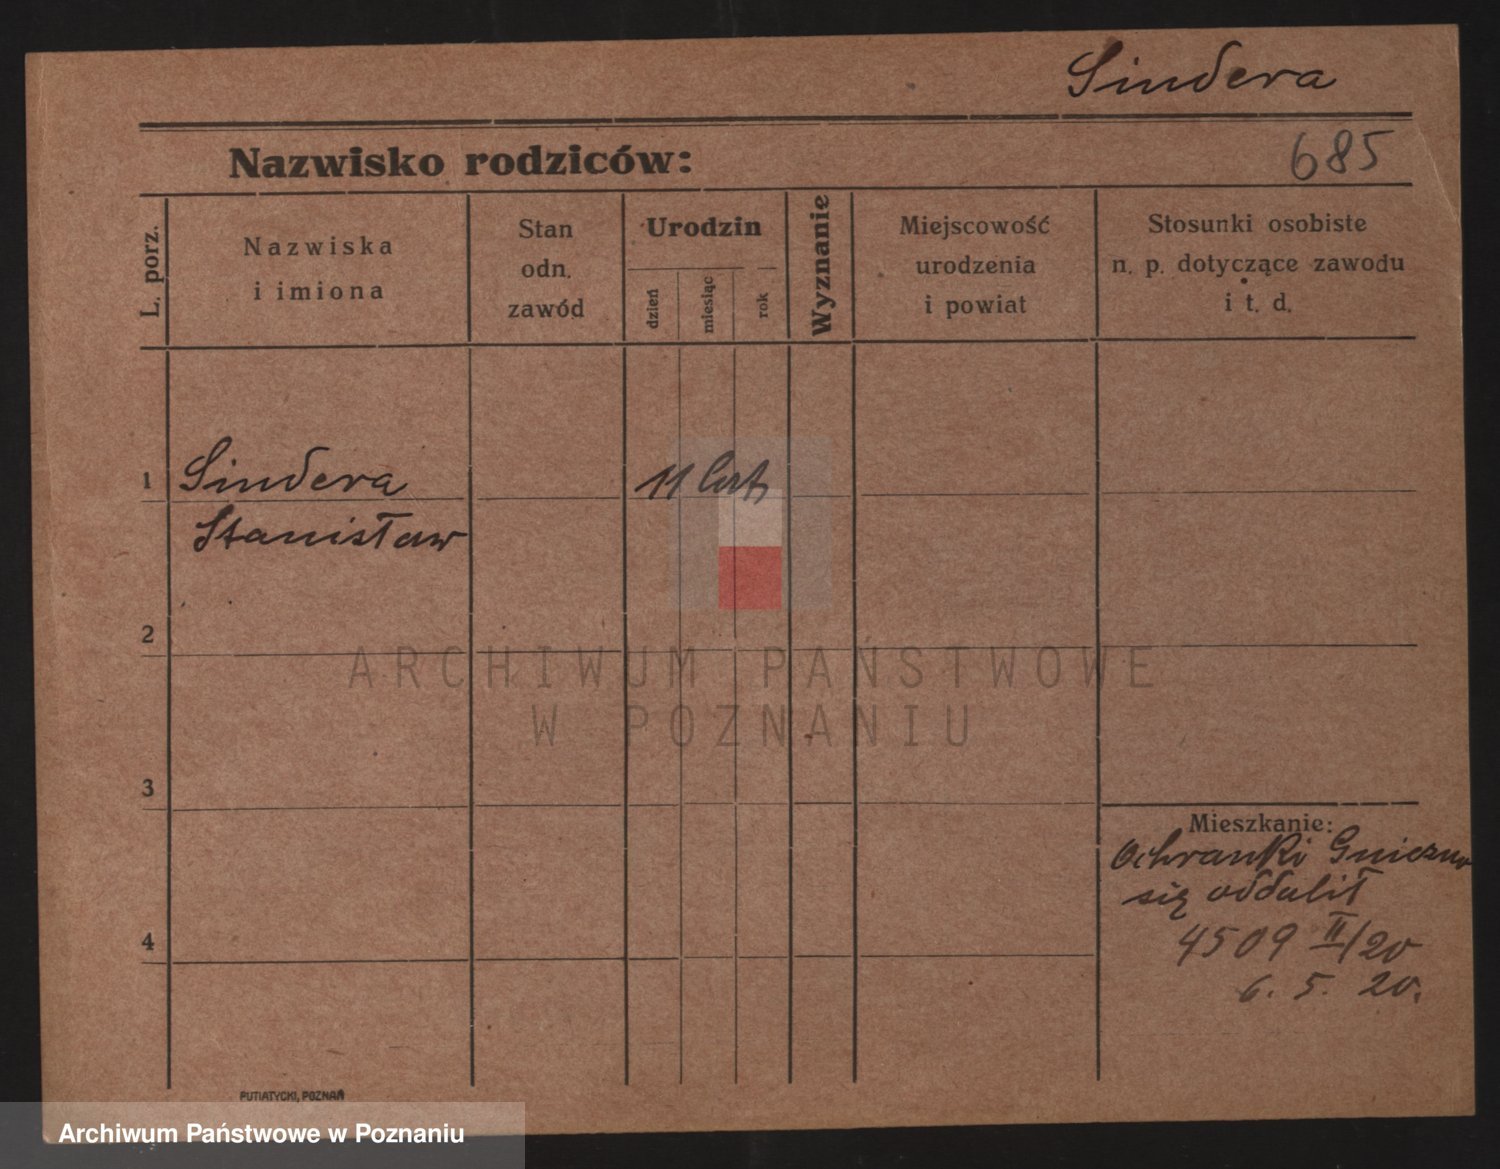 Sindera
Nazwisko rodziców:
685
L. porz.
Nazwiska
i imiona
Stan
odn.
zawód
Urodzin
dzień
miesiąc
rok
Wyznanie
Miejscowość
urodzenia
i powiat
Stosunki osobiste
n. p. dotyczące zawodu
i t. d.
1
Sindera
Stanisław
11 lat
2
3
4
Mieszkanie:
Ochranki Gniezno
się oddalił
4509 II/20
6. 5. 20.
PUTIATYCKI, POZNAŃ
ARCHIWUM PAŃSTWOWE
W POZNANIU
Archiwum Państwowe w Poznaniu